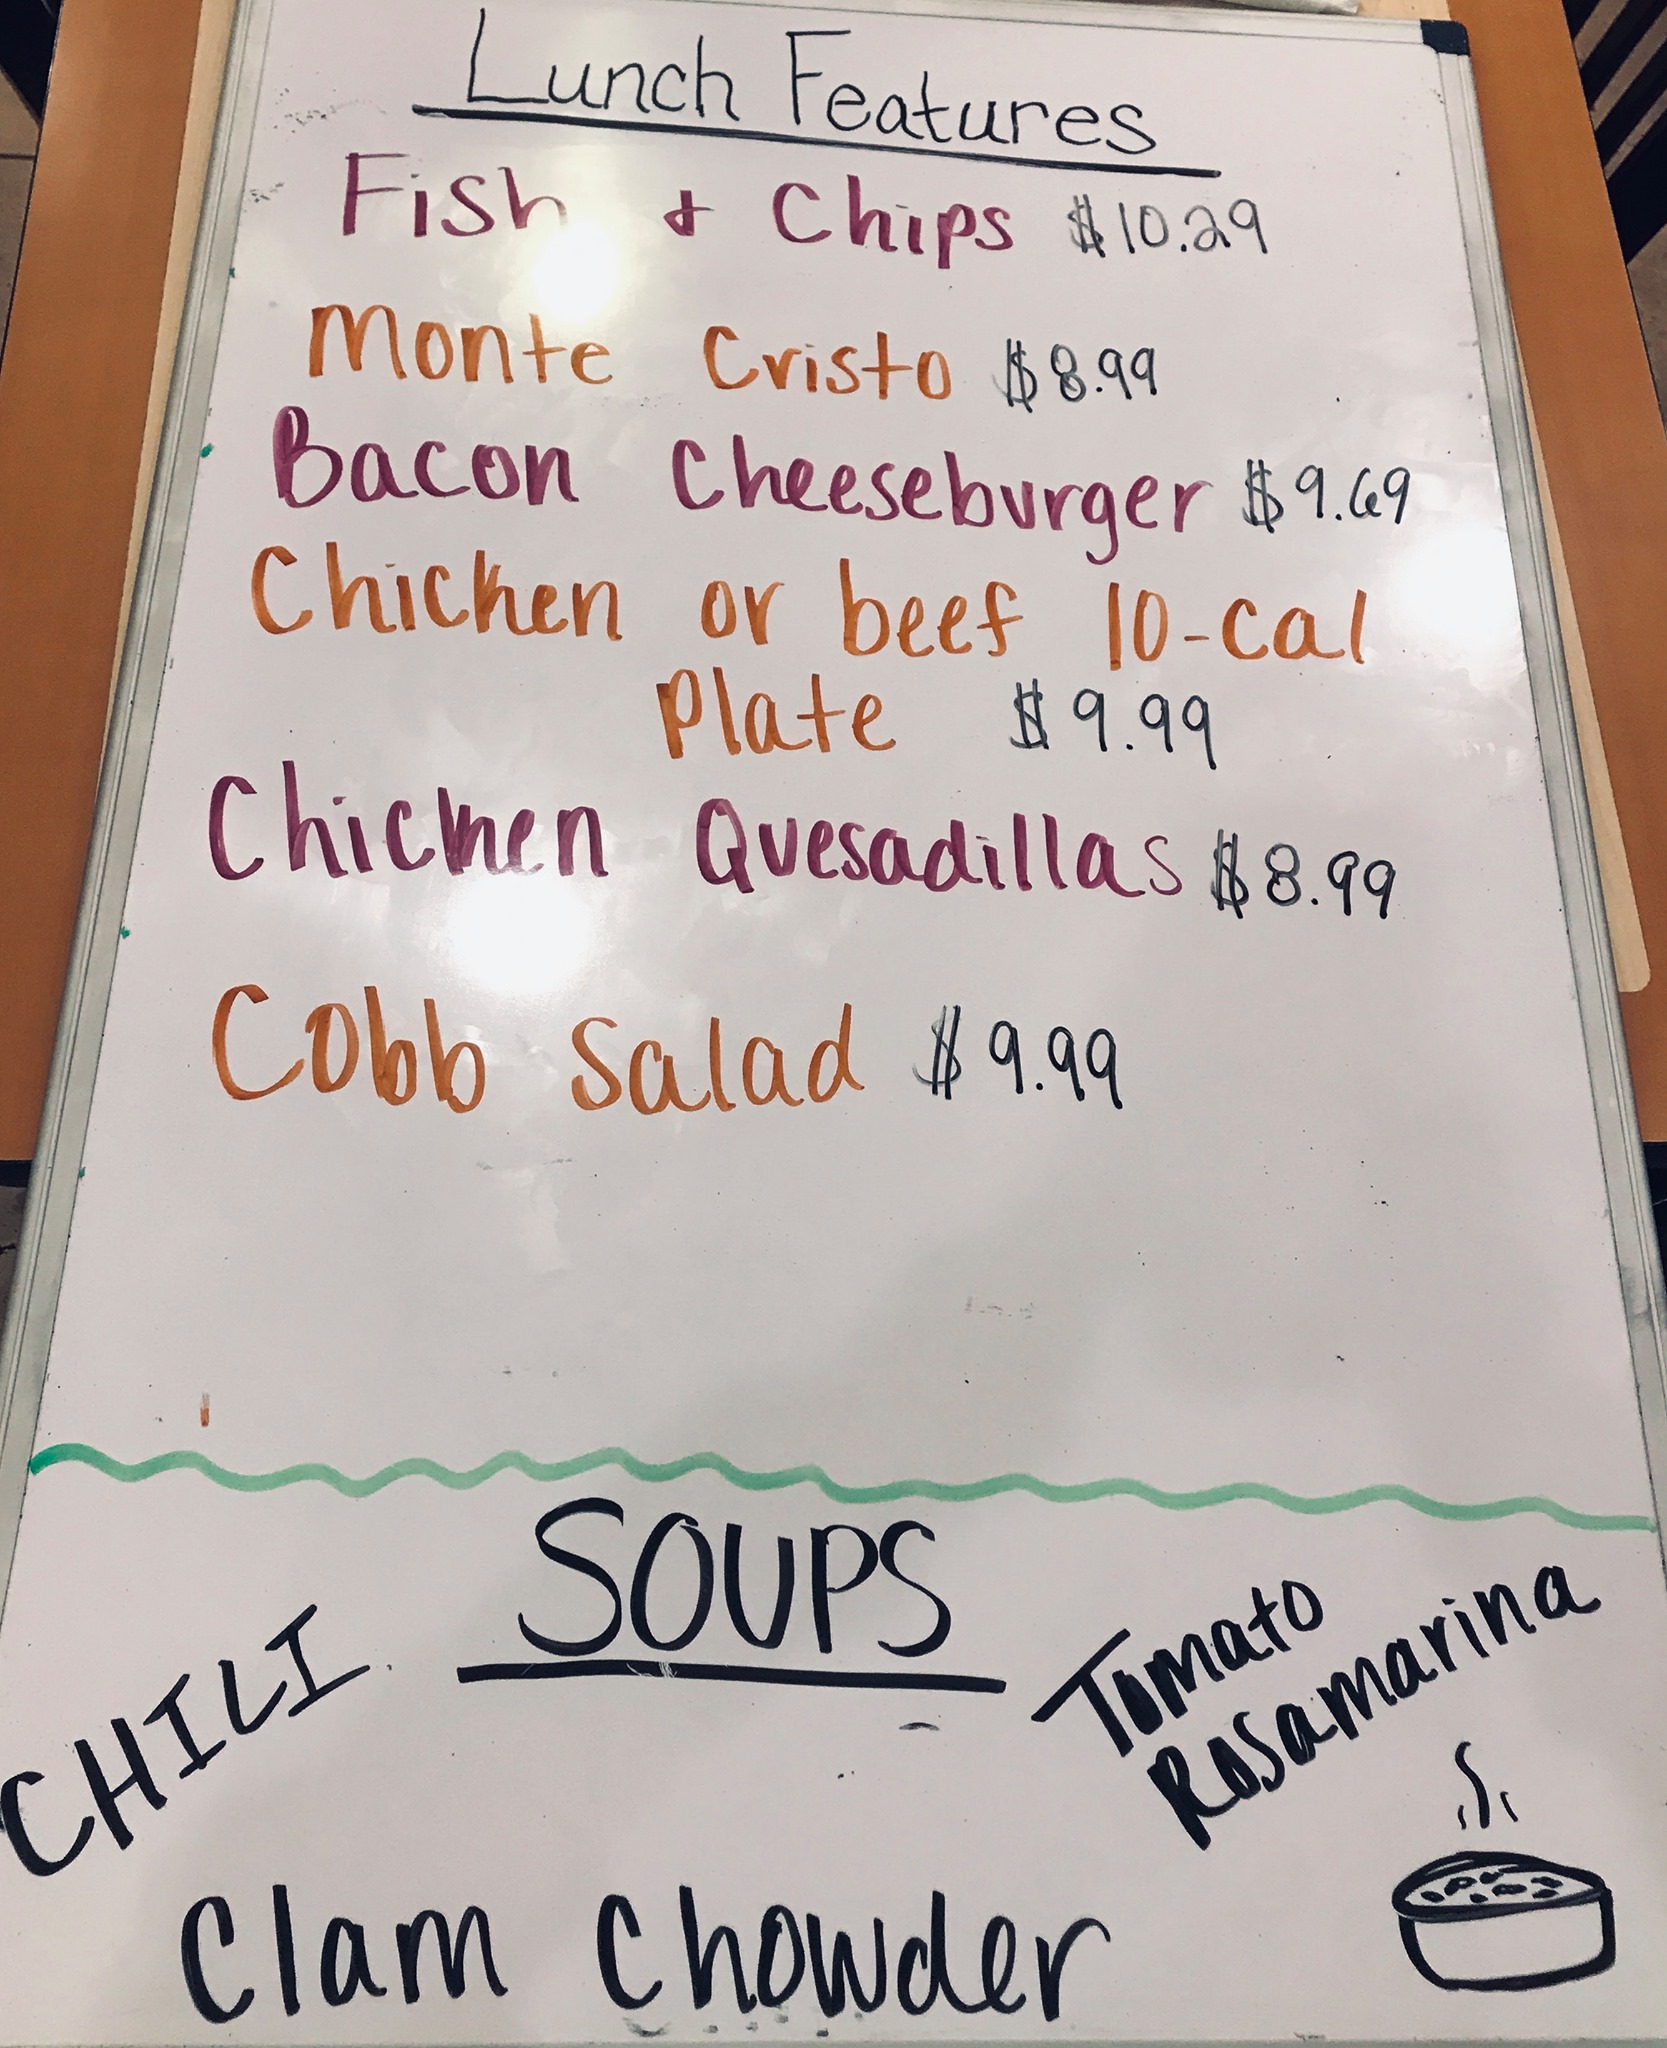 Lunch Features
Fish & Chips $10.29
Monte Cristo $8.99
Bacon Cheeseburger $9.69
Chicken or beef 10-cal
Plate $9.99
Chicken Quesadillas $8.99
Cobb Salad $9.99
SOUPS
CHILI
Tomato
Rosamarina
Clam Chowder